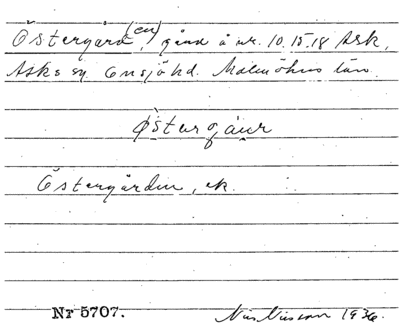 Östergård (en), gård å nr. 10, 15, 18 Ask,
Asks sn Onsjö hd. Malmöhus län.
Östergården, ek.
Nr 5707.
Nils Nilsson 1936.